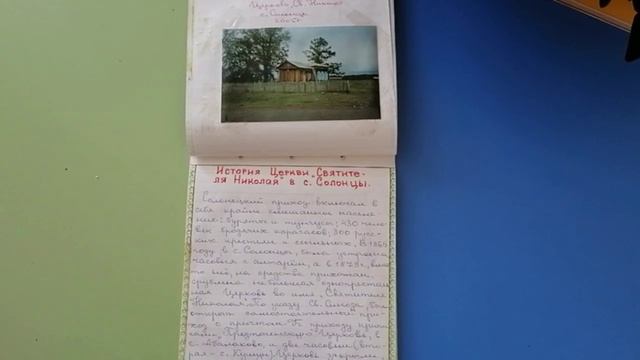 Церковь Св. Николая
с. Солонцы
2005г
История Церкви „Святите-
ля Николая" в с. Солонцы.
Солонецкий приход включал в
себя крайне смешанное населе-
ние: буряты и тунгусы; 430 чело-
век бродячих карагасов; 300 русс-
ких крестьян и ссыльных. В 1865
году в с. Солонцы, была устроена
часовня с алтарём, а в 1879г, вмес-
то неё, на средства прихожан
срублена небольшая однопрестоль-
ная Церковь во имя „Святителя
Николая". По указу Св. Синода, был
открыт самостоятельный при-
ход с причтом. К приходу
Церковь, в
и две часовни
Церковь закрыли